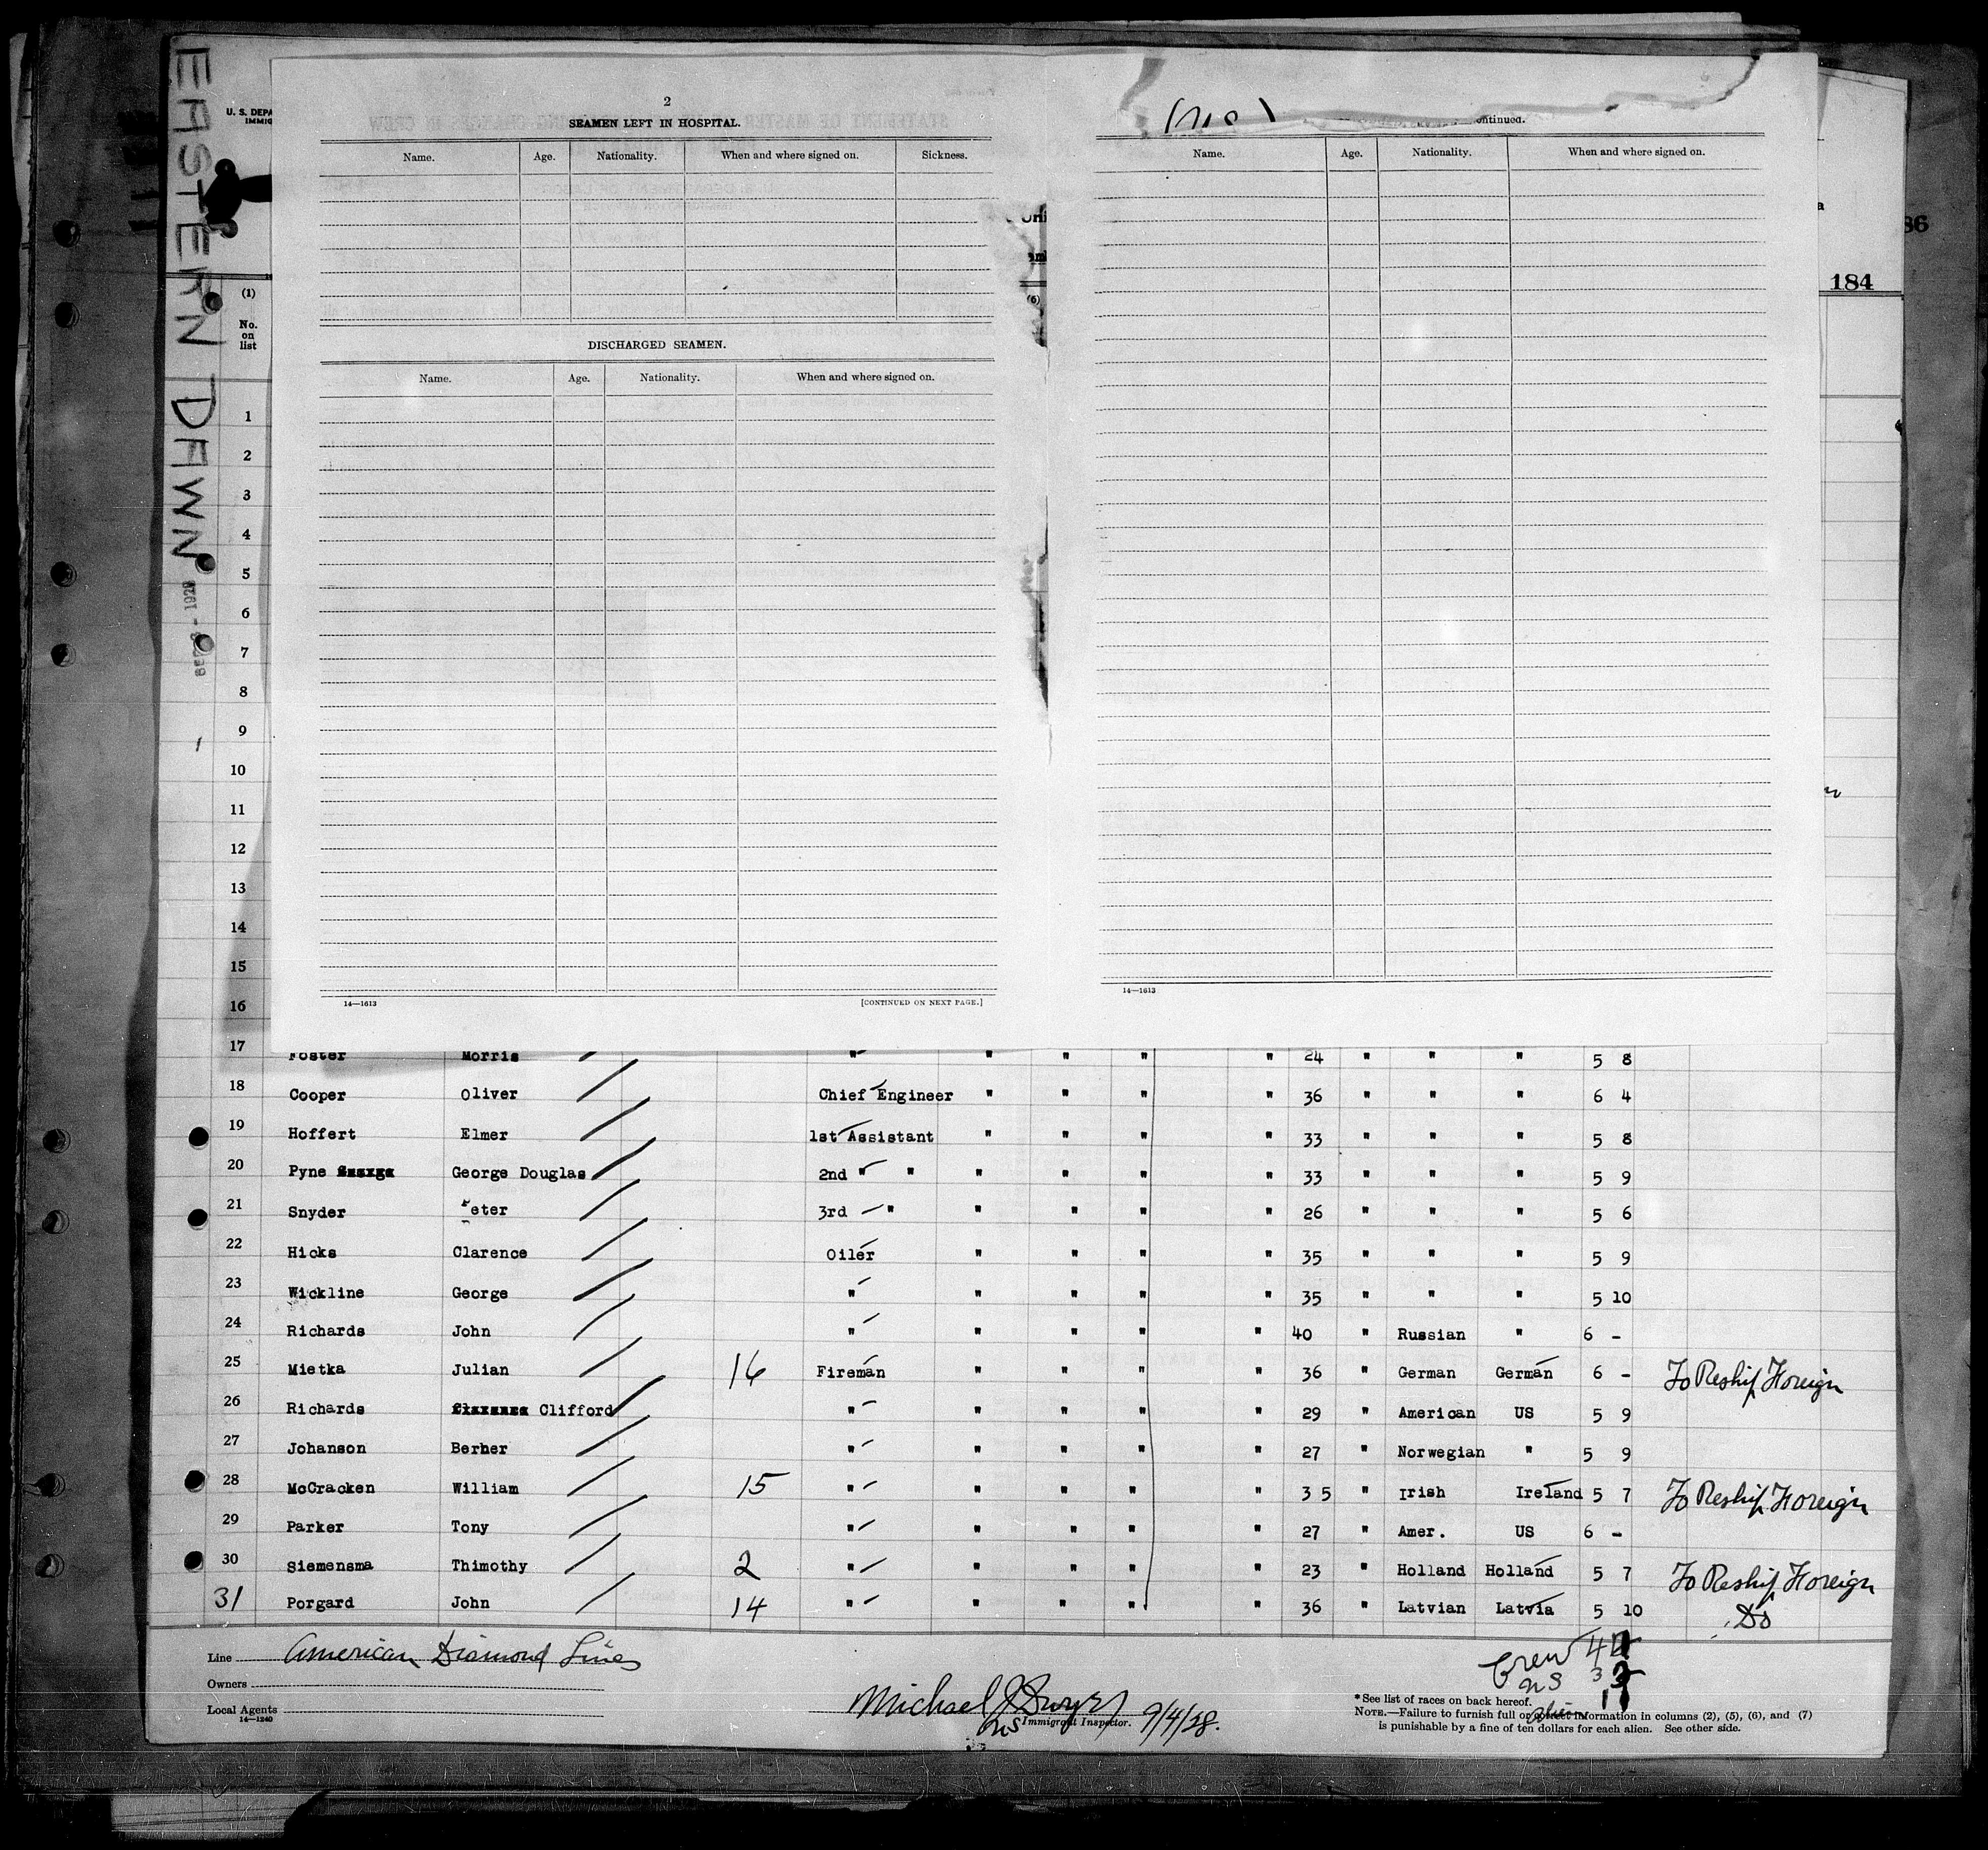 EASTERN DAWN
U. S. DEPA
IMMIG
2
SEAMEN LEFT IN HOSPITAL.
Name. Age. Nationality. When and where signed on. Sickness.
DISCHARGED SEAMEN.
Name. Age. Nationality. When and where signed on.
14—1613 [CONTINUED ON NEXT PAGE.]
ontinued.
Name. Age. Nationality. When and where signed on.
14—1613
86
184
(1)
No.
on
list
(6)
1
2
3
4
5
6
7
8
9
10
11
12
13
14
15
16
17 Foster Morris " " " " " 24 " " " 5 8
18 Cooper Oliver Chief Engineer " " " " 36 " " " 6 4
19 Hoffert Elmer 1st Assistant " " " " 33 " " " 5 8
20 Pyne George Douglas 2nd " " " " " " 33 " " " 5 9
21 Snyder Peter 3rd " " " " " 26 " " " 5 6
22 Hicks Clarence Oiler " " " " 35 " " " 5 9
23 Wickline George " " " " " 35 " " " 5 10
24 Richards John " " " " " 40 " Russian " 6 -
25 Mietka Julian 16 Fireman " " " " 36 " German German 6 - To Reship Foreign
26 Richards Clifford " " " " " 29 " American US 5 9
27 Johanson Berner " " " " " 27 " Norwegian " 5 9
28 McCracken William 15 " " " " " 3 5 " Irish Ireland 5 7 To Reship Foreign
29 Parker Tony " " " " " 27 " Amer. US 6 -
30 Siemensma Thimothy 2 " " " " " 23 " Holland Holland 5 7 To Reship Foreign
31 Porgard John 14 " " " " " 36 " Latvian Latvia 5 10 Do
Line American Diamond Lines
Owners
Local Agents
14—1240
Michael J Dwyer
Immigrant Inspector. 9/4/28.
Crew
US
alien
* See list of races on back hereof.
NOTE.—Failure to furnish full or correct information in columns (2), (5), (6), and (7)
is punishable by a fine of ten dollars for each alien. See other side.